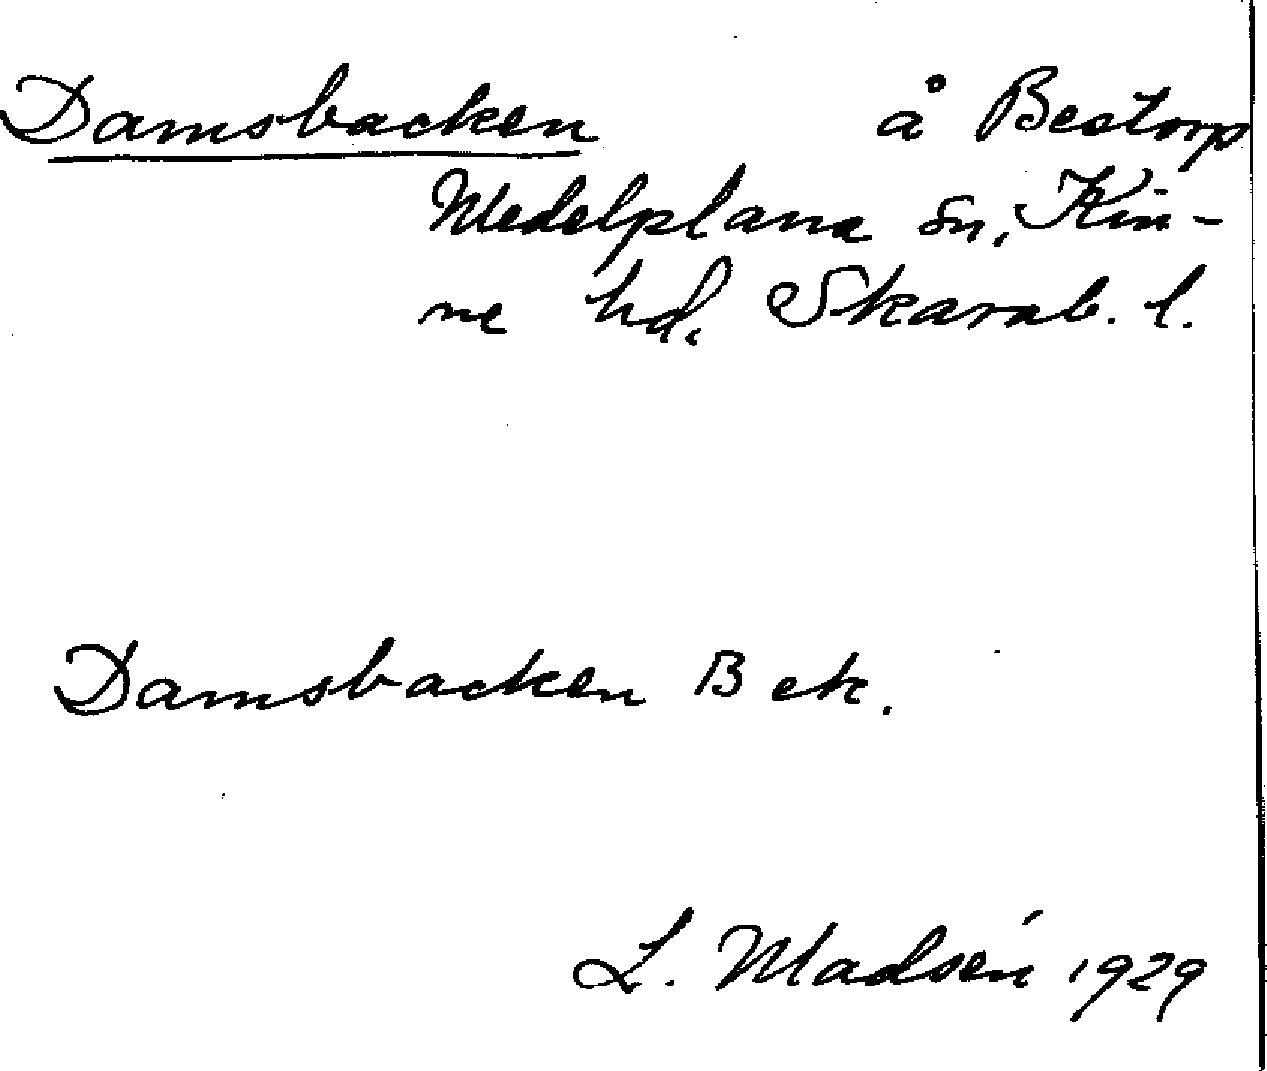 Damsbacken å Bestorp
Medelplana sn, Kin-
ne hd. Skarab. l.
Damsbacken Bek.
L. Madsén 1929